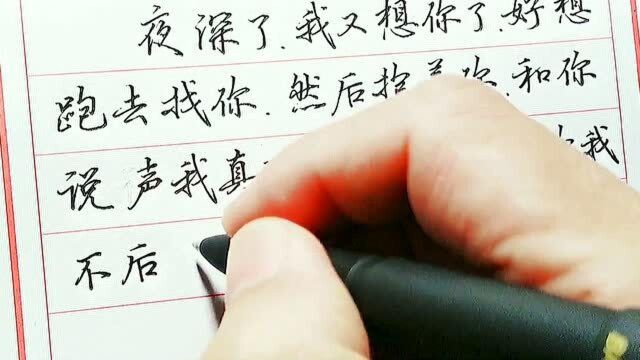 夜深了.我又想你了.好想
跑去找你.然后抱着你.和你
说声我真 我
不后